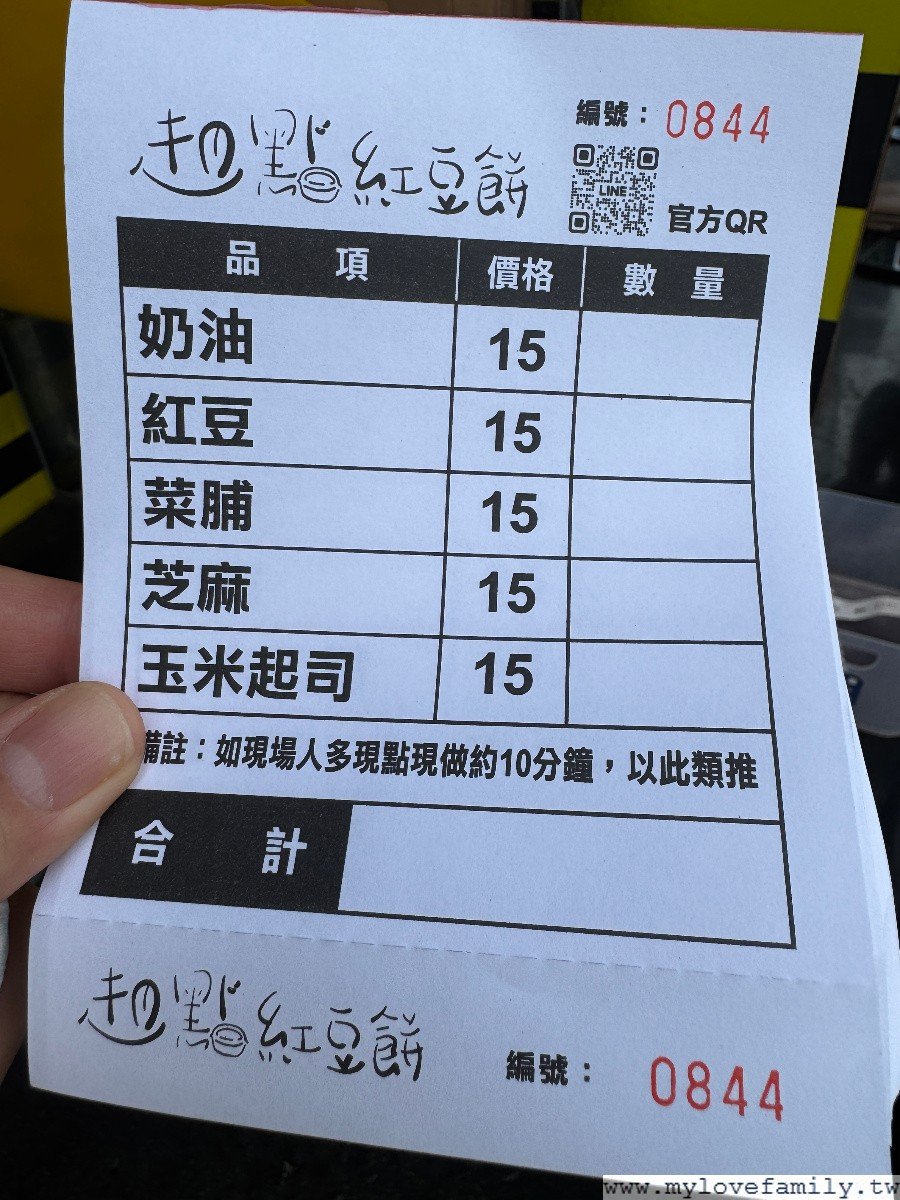 編號：0844
起點紅豆餅
LINE
官方QR
品項 價格 數量
奶油 15
紅豆 15
菜脯 15
芝麻 15
玉米起司 15
備註：如現場人多現點現做約10分鐘，以此類推
合計
起點紅豆餅
編號：0844
www.mylovefamily.tw